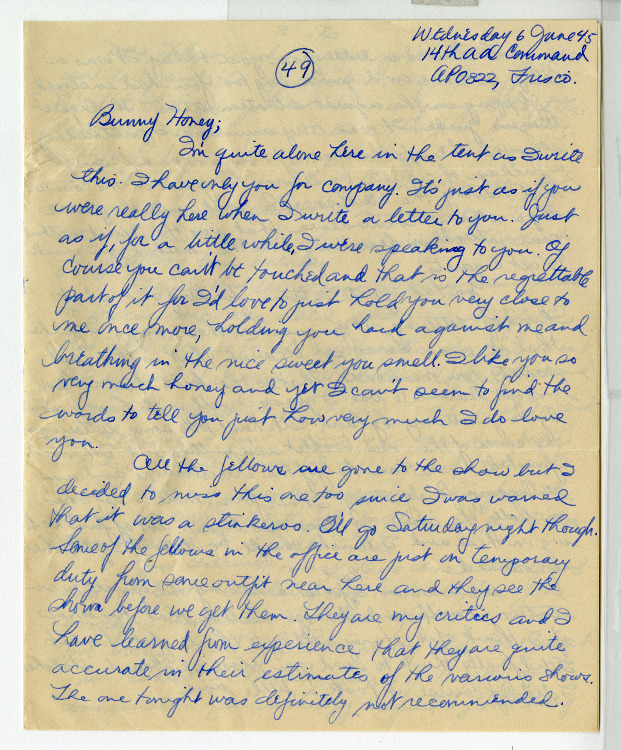 Wednesday 6 June 45
14th aa Command
APO 822, Frisco.
49
Bunny Honey;
I'm quite alone here in the tent as I write
this. I have only you for company. It's just as if you
were really here when I write a letter to you. Just
as if, for a little while, I were speaking to you. Of
course you can't be touched and that is the regrettable
part of it for I'd love to just hold you very close to
me once more, holding you hard against me and
breathing in the nice sweet you smell. I like you so
very much honey and yet I can't seem to find the
words to tell you just how very much I do love
you.
All the fellows are gone to the show but I
decided to miss this one too since I was warned
that it was a stinkeroo. I'll go Saturday night though.
Some of the fellows in the office are just on temporary
duty from some outfit near here and they see the
shows before we get them. They are my critics and I
have learned from experience that they are quite
accurate in their estimates of the various shows.
The one tonight was definitely not recommended.